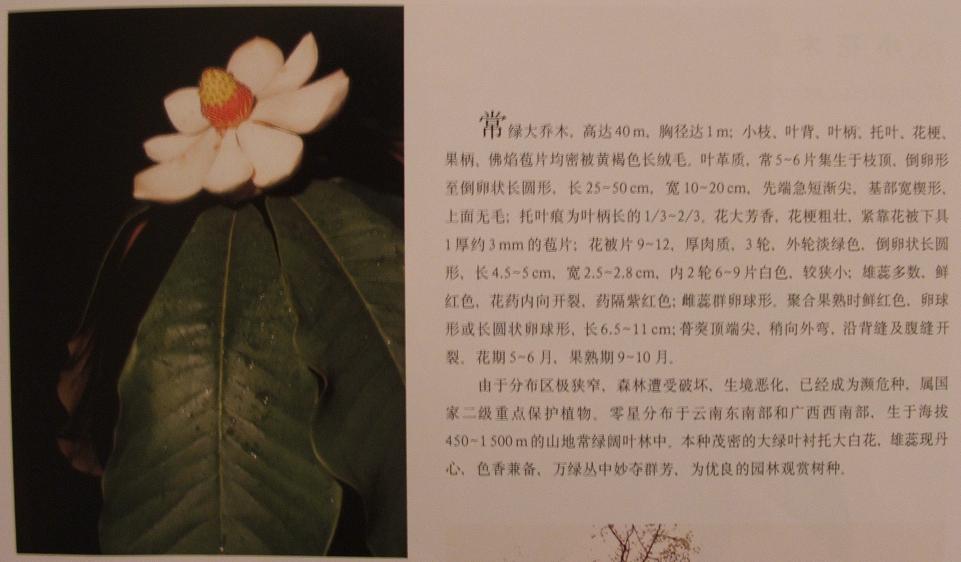 常绿大乔木，高达40m，胸径达1m；小枝、叶背、叶柄、托叶、花梗、
果柄、佛焰苞片均密被黄褐色长绒毛。叶革质，常5~6片集生于枝顶，倒卵形
至倒卵状长圆形，长25~50cm，宽10~20cm，先端急短渐尖，基部宽楔形，
上面无毛；托叶痕为叶柄长的1/3~2/3。花大芳香，花梗粗壮，紧靠花被下具
1厚约3mm的苞片；花被片9~12，厚肉质，3轮，外轮淡绿色，倒卵状长圆
形，长4.5~5cm，宽2.5~2.8cm，内2轮6~9片白色，较狭小；雄蕊多数，鲜
红色，花药内向开裂，药隔紫红色；雌蕊群卵球形。聚合果熟时鲜红色，卵球
形或长圆状卵球形，长6.5~11cm；蓇葖顶端尖，稍向外弯，沿背缝及腹缝开
裂。花期5~6月，果熟期9~10月。
由于分布区极狭窄，森林遭受破坏、生境恶化，已经成为濒危种，属国
家二级重点保护植物。零星分布于云南东南部和广西西南部，生于海拔
450~1500m的山地常绿阔叶林中。本种茂密的大绿叶衬托大白花，雄蕊现丹
心，色香兼备，万绿丛中妙夺群芳，为优良的园林观赏树种。